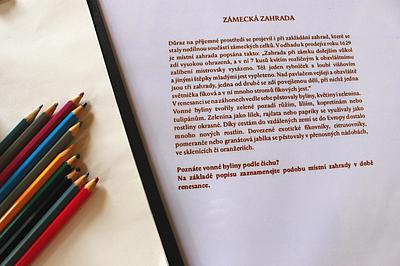 ZÁMECKÁ ZAHRADA
Důraz na příjemné prostředí se projevil i při zakládání zahrad, které se
staly nedílnou součástí zámeckých celků. V odhadu k prodeji z roku 1629
je místní zahrada popsána takto: „Zahrada při zámku dolejším vůkol
zdí vysokou ohrazená, a v ní 7 kusů kvítím rozličným k obzvláštnímu
zalíbení mistrovsky vysázeno. Též jeden rybníček a loubí višňovím
a jinými štěpky mladými jest vypleteno. Nad pavlačem vejšeji a obzvláště
jsou tři zahrady, jedna od druhé se zdí povejšenou dělí, při nichž jedna
světnička fíková a v ní mnoho stromů fíkových jest.“
V renesanci se na záhonech vedle sebe pěstovaly byliny, květiny i zelenina.
Vonné byliny tvořily zelené pozadí růžím, liliím, kopretinám nebo
tulipánům. Zelenina jako lilek, rajčata nebo papriky se využívaly jako
rostliny okrasné. Díky cestám do vzdálených zemí se do Evropy dostalo
mnoho nových rostlin. Dovezené exotické fíkovníky, citrusovníky,
pomeranče nebo granátová jablka se pěstovaly v přenosných nádobách,
ve sklenících či oranžeriích.
Poznáte vonné byliny podle čichu?
Na základě popisu zaznamenejte podobu místní zahrady v době
renesance.